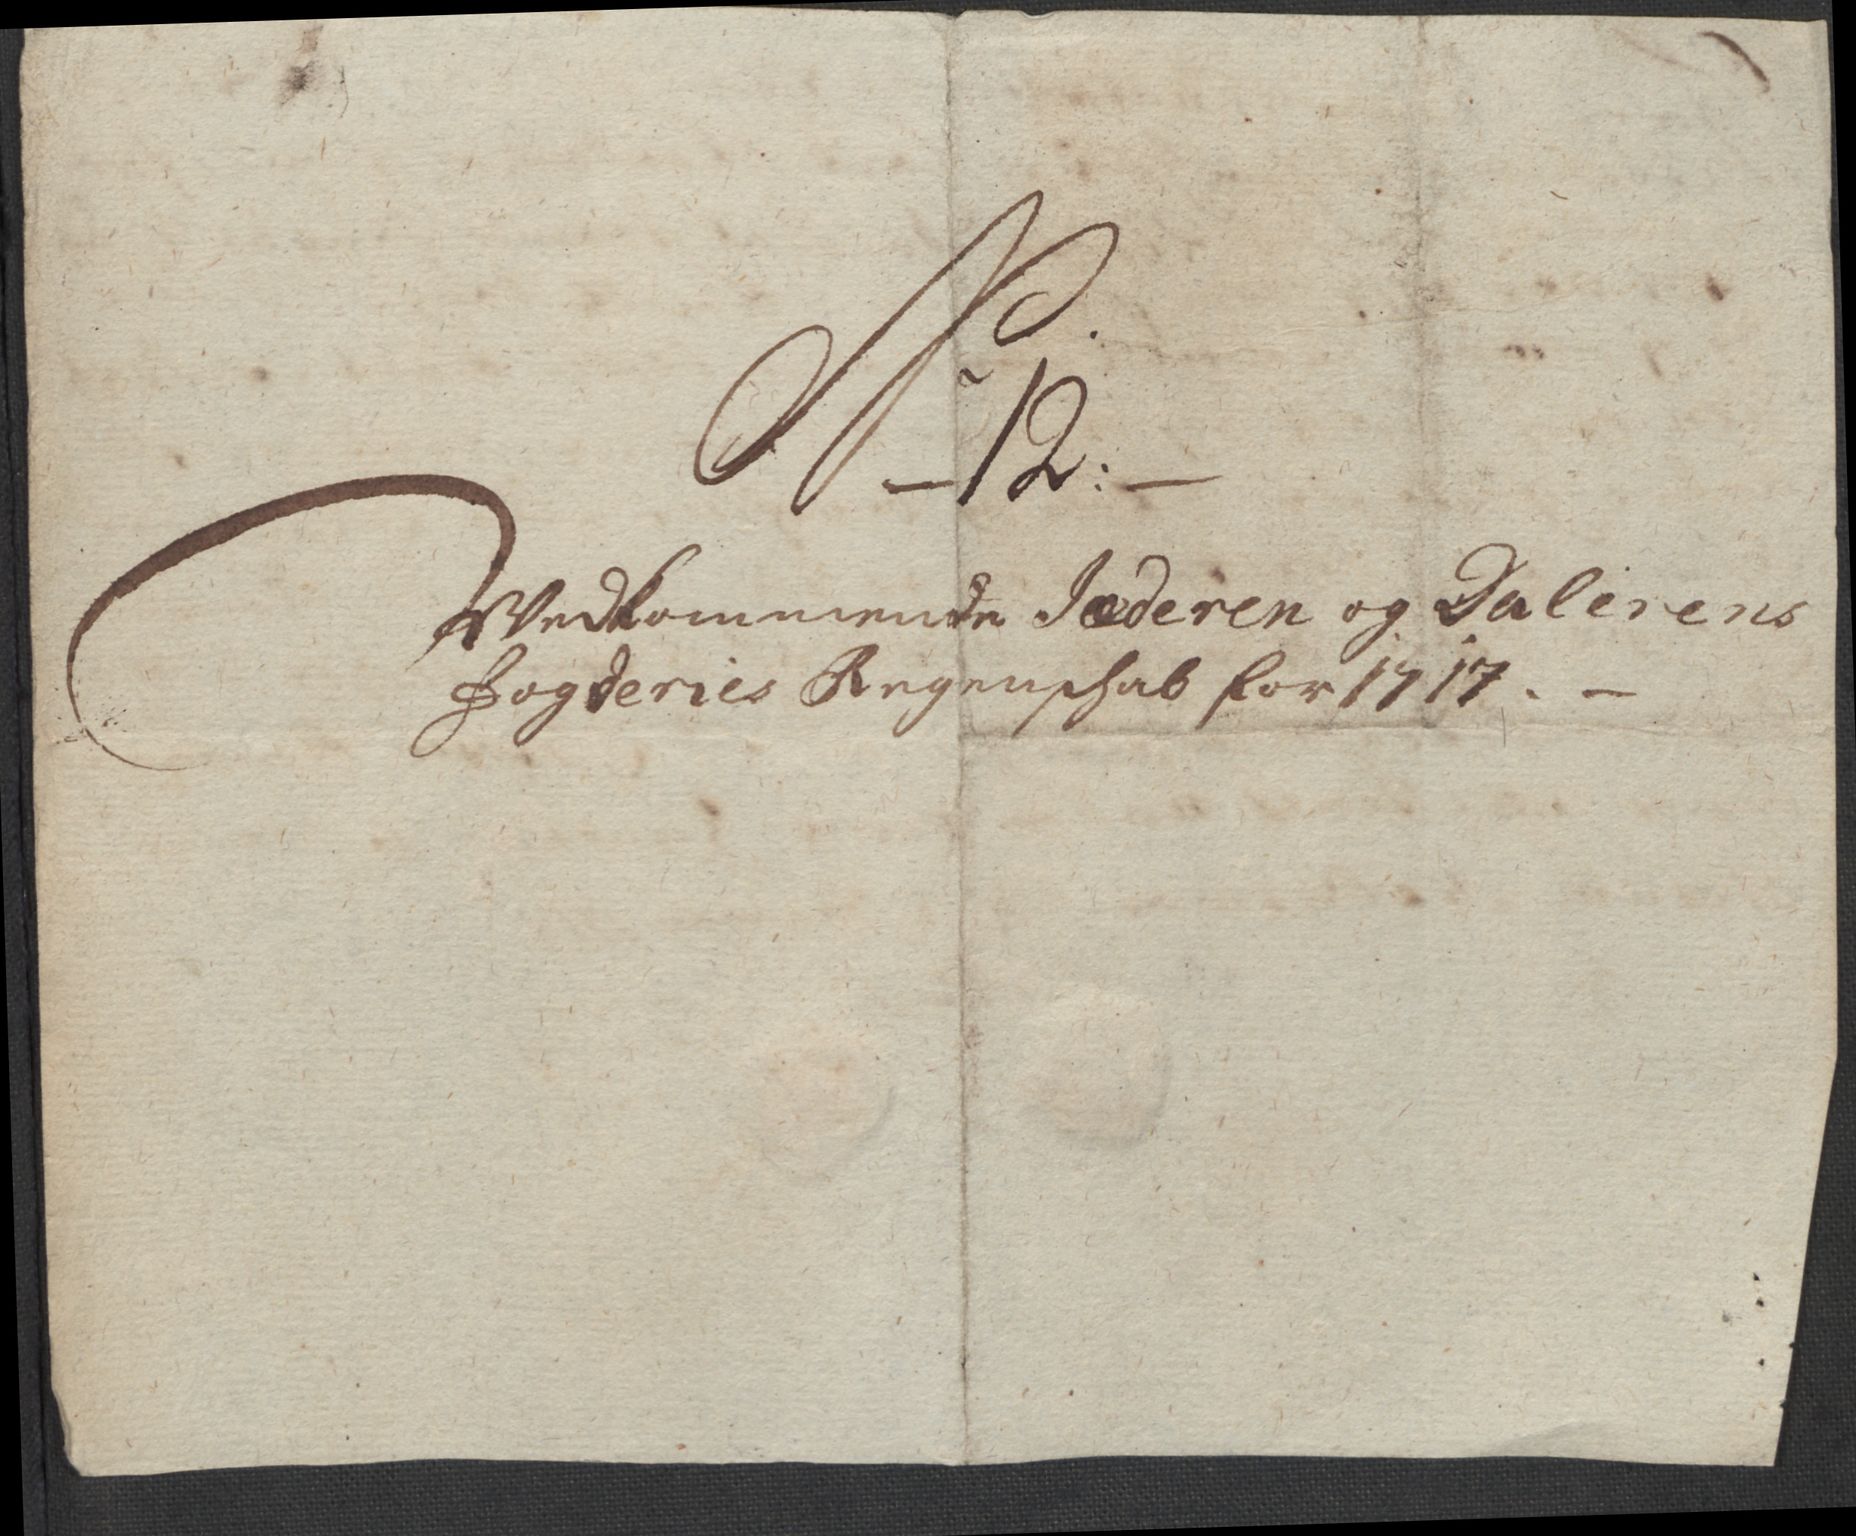 No.
- 12: -
Vedkommende Jæderen og Dalerens
fogderies Regenschab for 1717. -